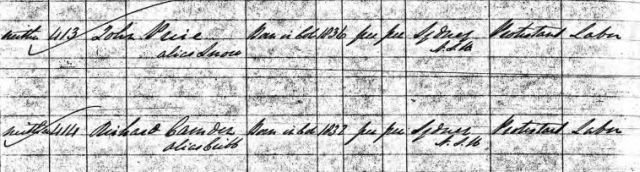 413 John
alias Snow
Born in Col 1836 free free Sydney
N.S.W
Protestant Labor
414 Richard Camden
alias
Born in Col 1837 free free Sydney
N.S.W
Protestant Labor